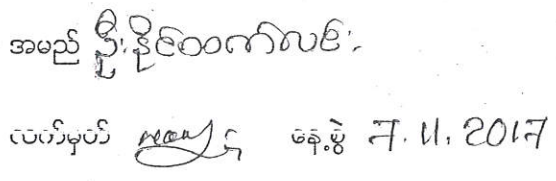 အမည် ဦးနိုင်ထက်လင်း
လက်မှတ် နေ့စွဲ 7.11.2017